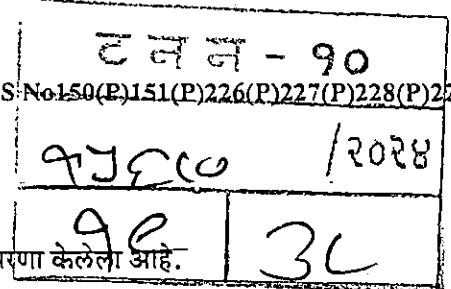 ट न न - १०
S No150(P)151(P)226(P)227(P)228(P)22
/२०२४
१९ ३८
केलेला आहे.